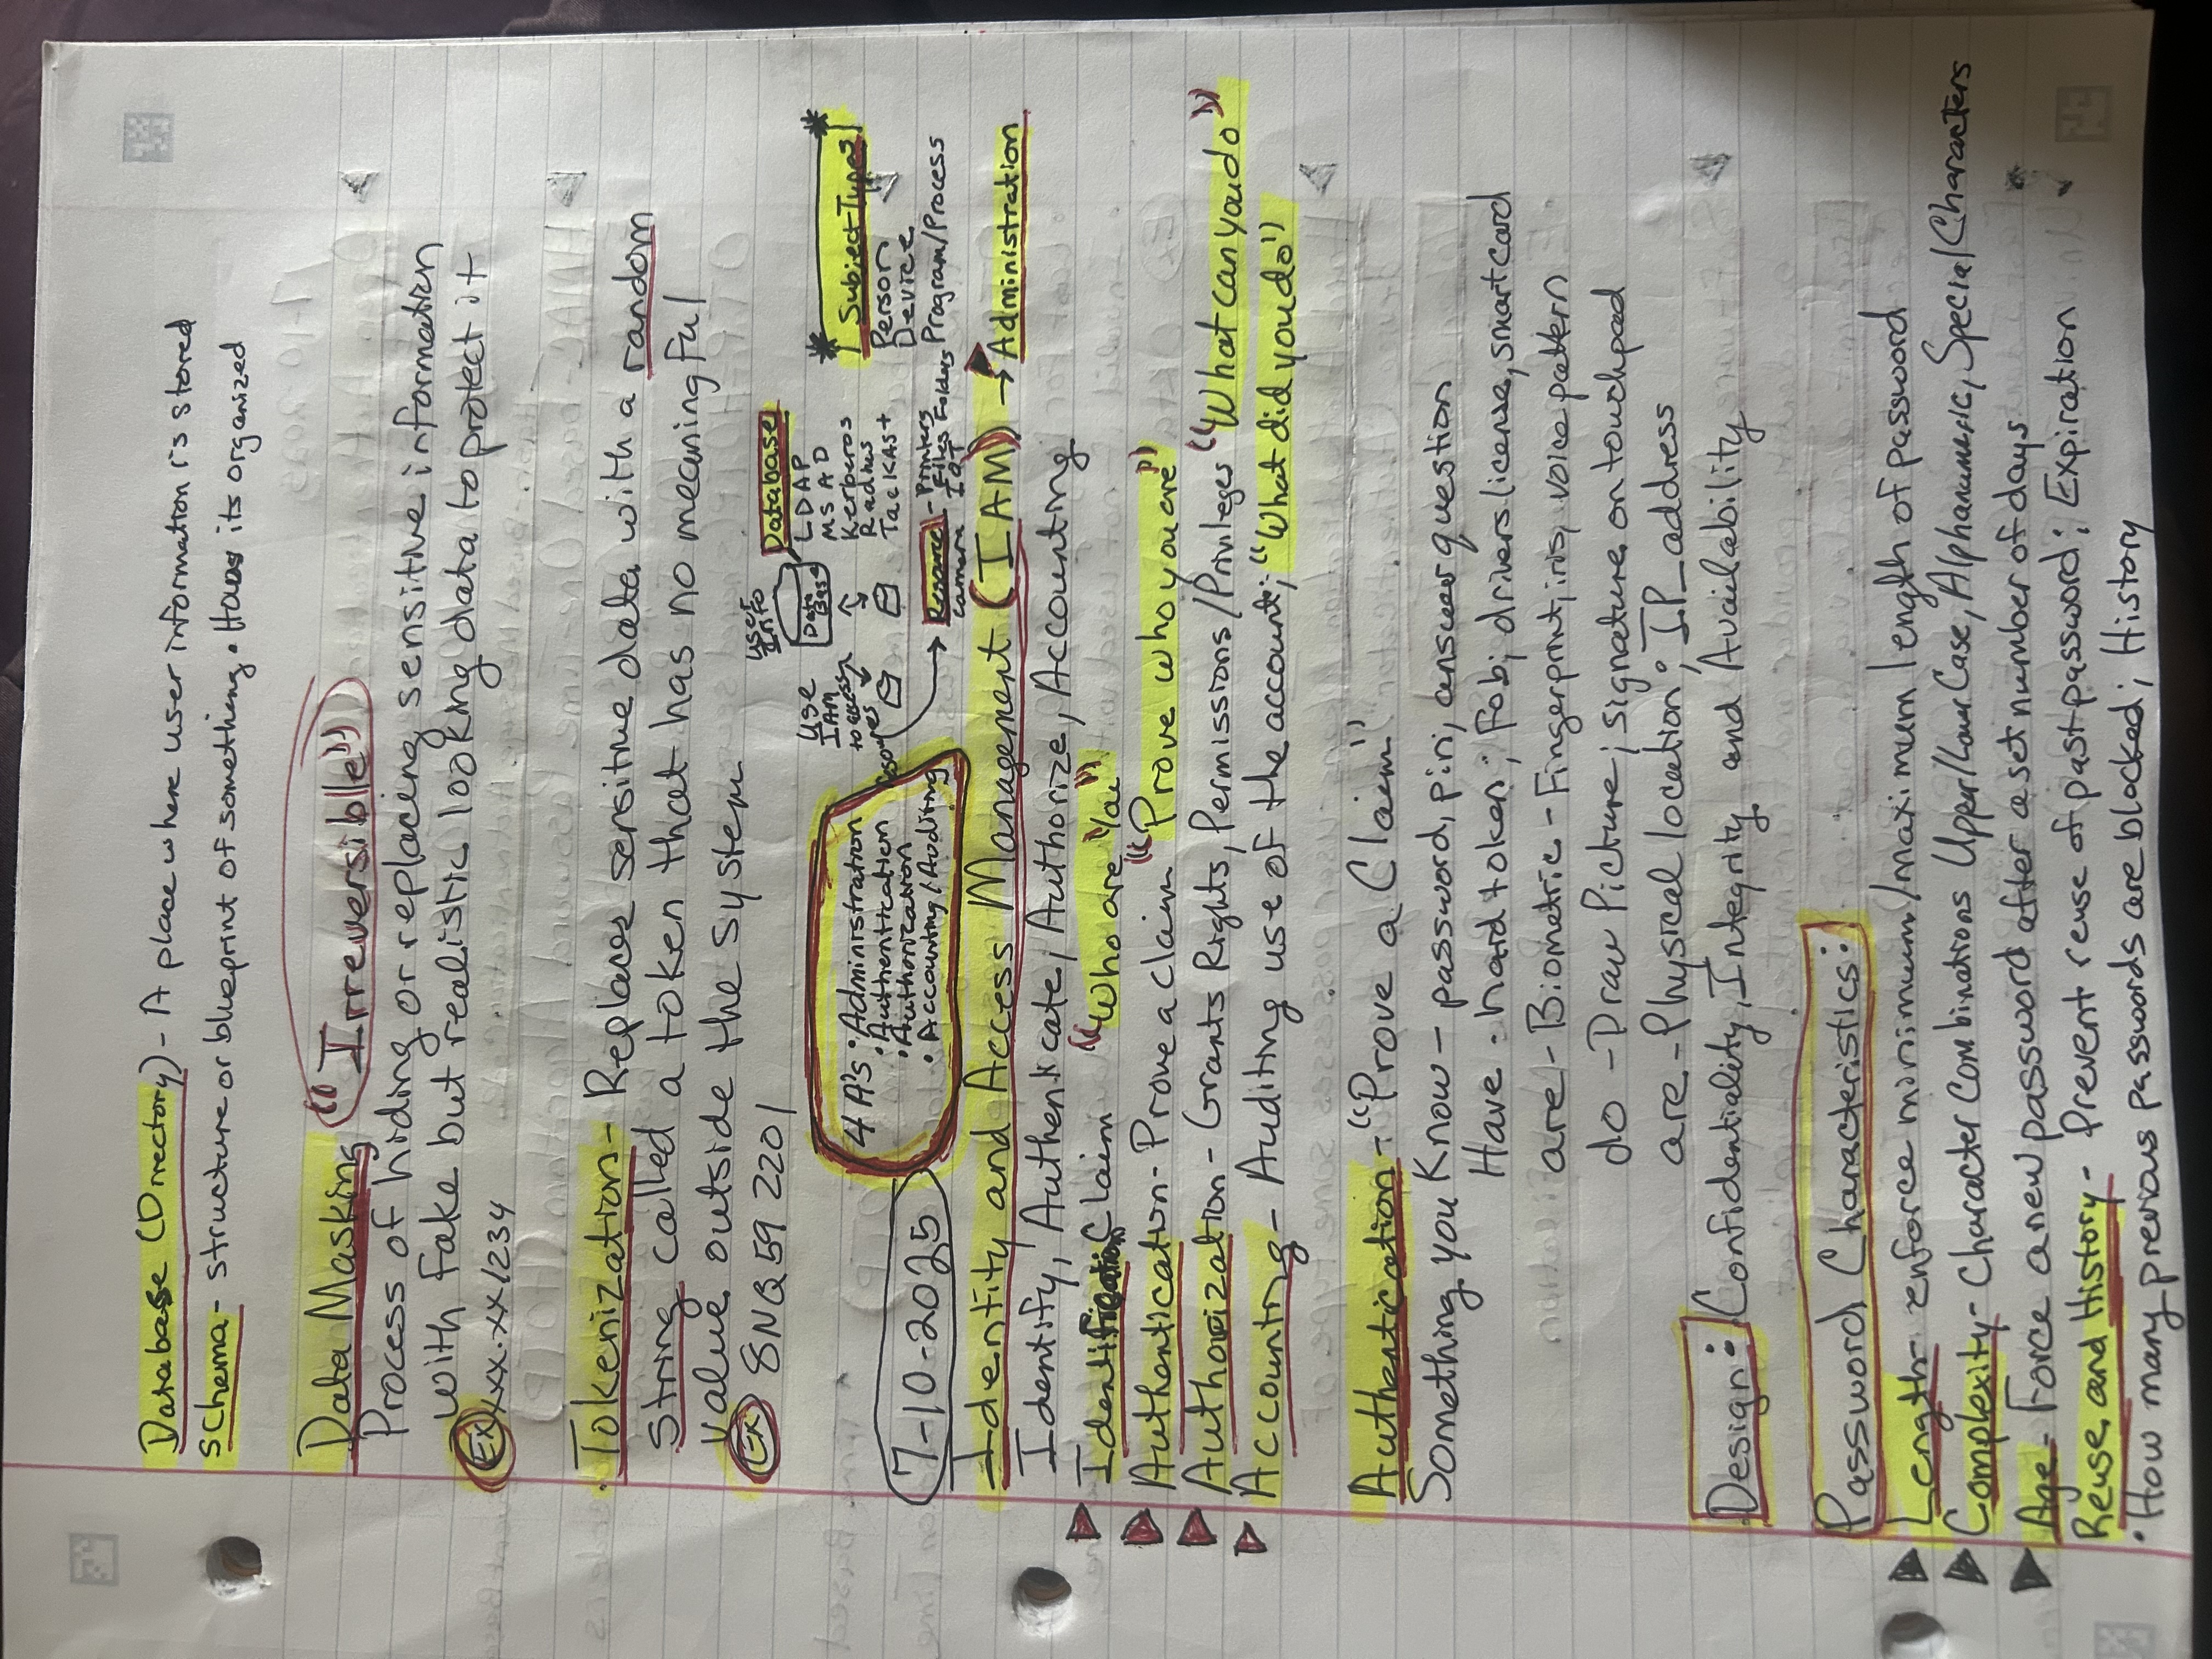 Database (Directory) - A place where user information is stored
Schema - structure or blueprint of something. How its organized
Data Masking "Irreversible"
Process of hiding or replacing sensitive information
with fake but realistic looking data to protect it
Ex xxx-xx/234
Tokenization - Replaces sensitive data with a random
string called a token that has no meaningful
value outside the system
Ex 8NQ59 2201
7-10-2025
4 A's • Administration
• Authentication
• Authorization
• Accounting/Auditing
Use
IAM
to access
resources
User
Info
Data
Base
Database
LDAP
MS AD
Kerberos
Radius
TacKAS+
Resource - Printers
Files Folders
camera IOT
Subject Types
Person
Device
Program/Process
Identity and Access Management (IAM) → Administration
Identify, Authenticate, Authorize, Accounting
Identification Claim "Who are You"
Authentication - Prove a claim "Prove who you are"
Authorization - Grants Rights, Permissions/Privileges "What can you do"
Accounting - Auditing use of the account; "What did you do"
Authentication - "Prove a Claim"
Something you Know - password, pin, answer question
Have - hard token; Fob; drivers license, smart card
are - Biometric - Fingerprint, iris, voice pattern
do - Draw Picture; signature on touchpad
are - Physical location; IP address
Design: Confidentiality, Integrity and Availability
Password Characteristics:
Length - enforce minimum/maximum length of password
Complexity - Character Combinations Upper/Lower Case, Alphanumeric, Special Characters
Age - Force a new password after a set number of days
Reuse and History - Prevent reuse of past password; Expiration
• How many previous passwords are blocked; History